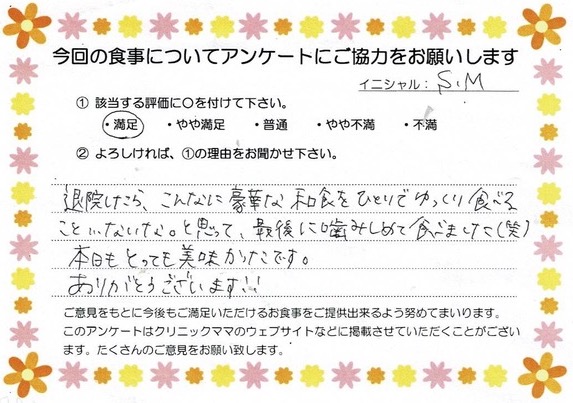 今回の食事についてアンケートにご協力をお願いします
イニシャル: S.M
① 該当する評価に○を付けて下さい。
・満足 ・やや満足 ・普通 ・やや不満 ・不満
② よろしければ、①の理由をお聞かせ下さい。
退院したら、こんなに豪華な和食をひとりでゆっくり食べる
こといないな。と思って、最後に噛みしめて食べました(笑)
本日もとっても美味かたです。
ありがとうございます!!
ご意見をもとに今後もご満足いただけるお食事をご提供出来るよう努めてまいります。
このアンケートはクリニックママのウェブサイトなどに掲載させていただくことがござい
ます。たくさんのご意見をお願い致します。